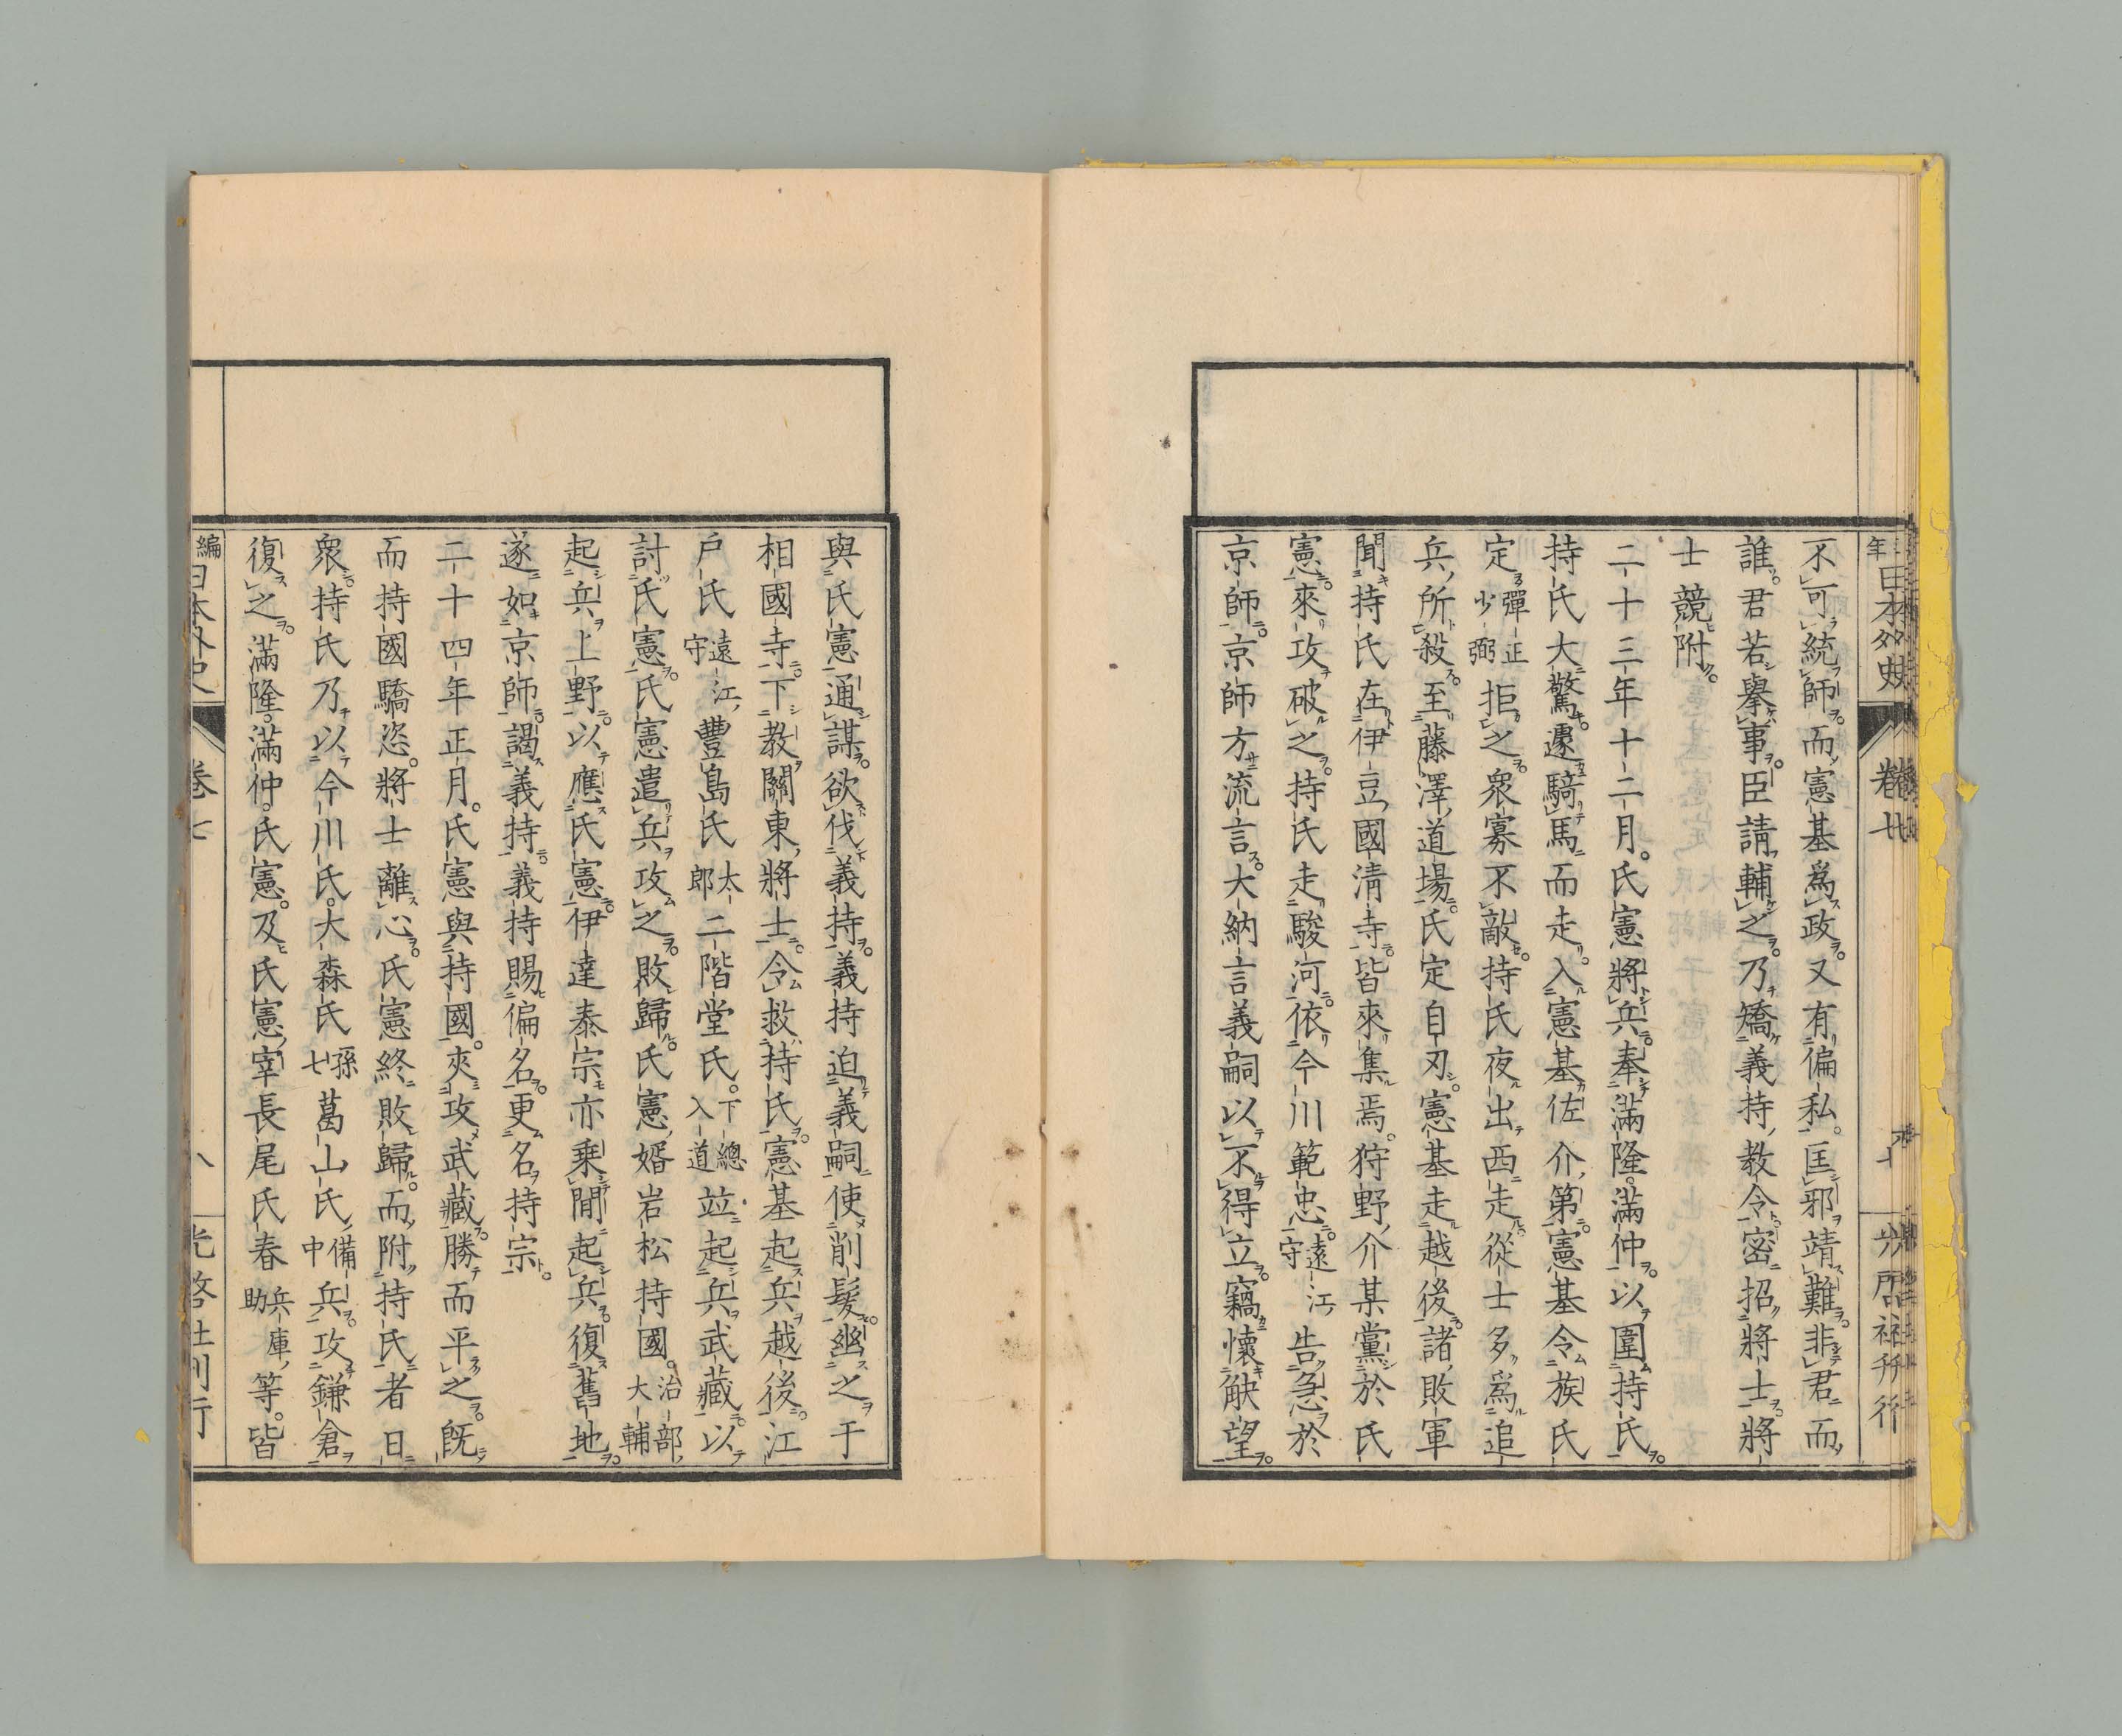 不可統師。而憲基爲政。又有偏私。匡邪靖難。非君而
誰。君若擧事。臣請輔之。乃矯義持教令。密招將士。將
士競附。
二十三年十二月。氏憲將兵。奉滿隆。滿仲。以圍持氏。
持氏大驚。遽騎馬而走。入憲基佐介第。憲基令族氏
定彈正少弼拒之。衆寡不敵。持氏夜出西走。從士多爲追
兵所殺。至藤澤道場。氏定自刃。憲基走越後。諸敗軍
聞持氏在伊豆國清寺。皆來集焉。狩野介某黨於氏
憲。來攻破之。持氏走駿河。依今川範忠。遠江守告急於
京師。京師方流言。大納言義嗣以不得立。竊懷觖望。
與氏憲通謀。欲伐義持。義持迫義嗣使削髮。幽之于
相國寺。下教關東將士。令救持氏。憲基起兵越後。江
戶氏遠江守豐島氏太郎二階堂氏。下總入道竝起兵武藏。以
討氏憲。氏憲遣兵攻之。敗歸。氏憲婿岩松持國。治部大輔
起兵上野。以應氏憲。伊達泰宗亦乘間起兵。復舊地。
遂如京師。謁義持。義持賜偏名。更名持宗。
二十四年正月。氏憲與持國。夾攻武藏。勝而平之。旣
而持國驕恣。將士離心。氏憲終敗歸。而附持氏者日
衆。持氏乃以今川氏。大森氏孫七葛山氏備中兵。攻鎌倉
復之。滿隆。滿仲。氏憲。及氏憲宰長尾氏春兵庫助等。皆
年日本外史
卷七
編日本外史
卷七
八
光啓社刊行